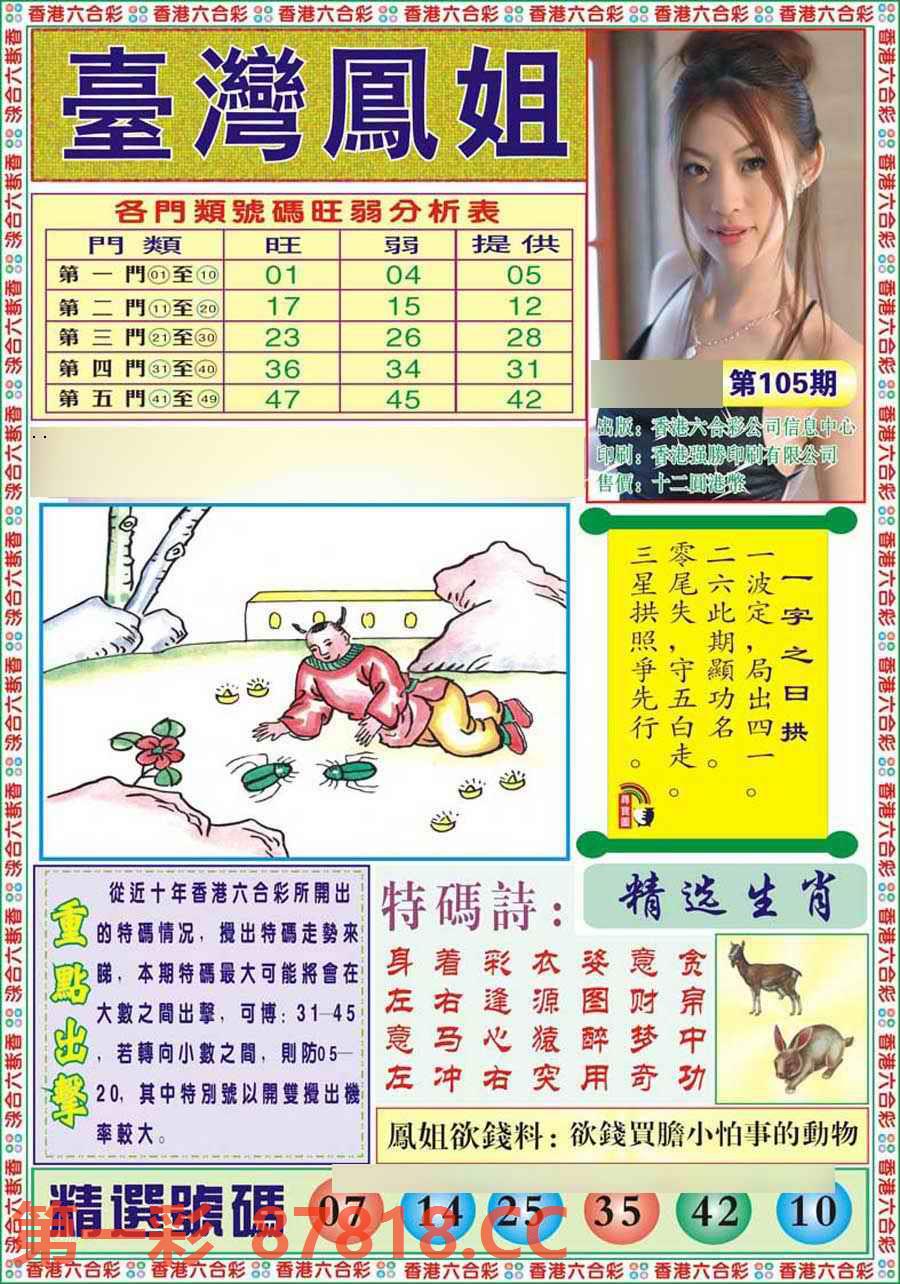 香港六合彩 香港六合彩 香港六合彩 香港六合彩 香港六合彩 香港六合彩 香港六合彩
臺灣鳳姐
各門類號碼旺弱分析表
門類 旺 弱 提供
第一門01至10 01 04 05
第二門11至20 17 15 12
第三門21至30 23 26 28
第四門31至40 36 34 31
第五門41至49 47 45 42
第105期
出版：香港六合彩公司信息中心
印刷：香港强勝印刷有限公司
售價：十二圓港幣
一字之曰拱
一波定，局出四一。
二六此期顯功名。
零尾失，守五白走。
三星拱照爭先行。
尋寶圖
重點出擊
從近十年香港六合彩所開出
的特碼情况，攪出特碼走勢來
睇，本期特碼最大可能將會在
大數之間出擊，可博：31—45
，若轉向小數之間，則防05—
20，其中特別號以開雙攪出機
率較大。
特碼詩：
身着彩衣姿意贪
左右逢源图财帛
意马心猿醉梦中
左冲右突用奇功
精选生肖
鳳姐欲錢料：欲錢買膽小怕事的動物
精選號碼 07 14 25 35 42 10
第一彩 87818.CC
香港六合彩 香港六合彩 香港六合彩 香港六合彩 香港六合彩 香港六合彩 香港六合彩